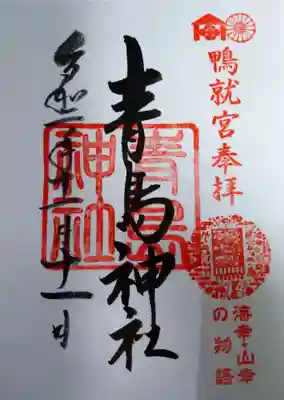 鴨就宮奉拝
海幸・山幸
の物語
青島神社
青島
神社
令和二年十一月十一日